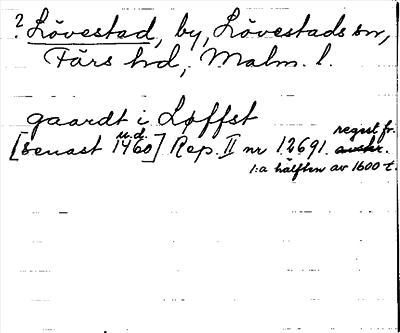 ? Lövestad, by, Lövestads sn,
Färs hd, Malm. l.
gaardt i Løffst
u.d.
[senast 1460] Rep. II nr 12691. avskr.
regest fr.
1:a hälften av 1600-t.